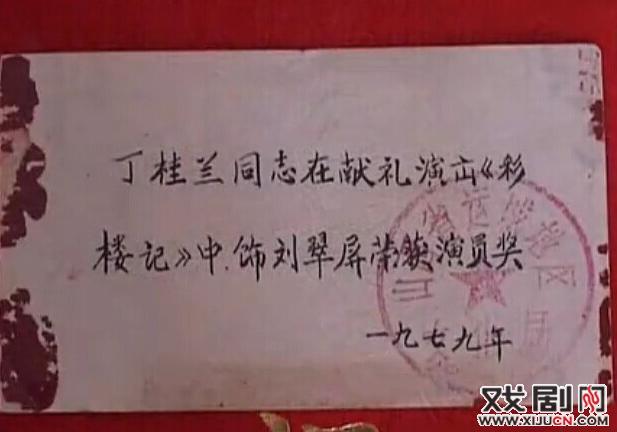 丁桂兰同志在献礼演出《彩
楼记》中.饰刘翠屏荣获演员奖
一九七九年
戏剧网
WWW.XIJUCN.COM